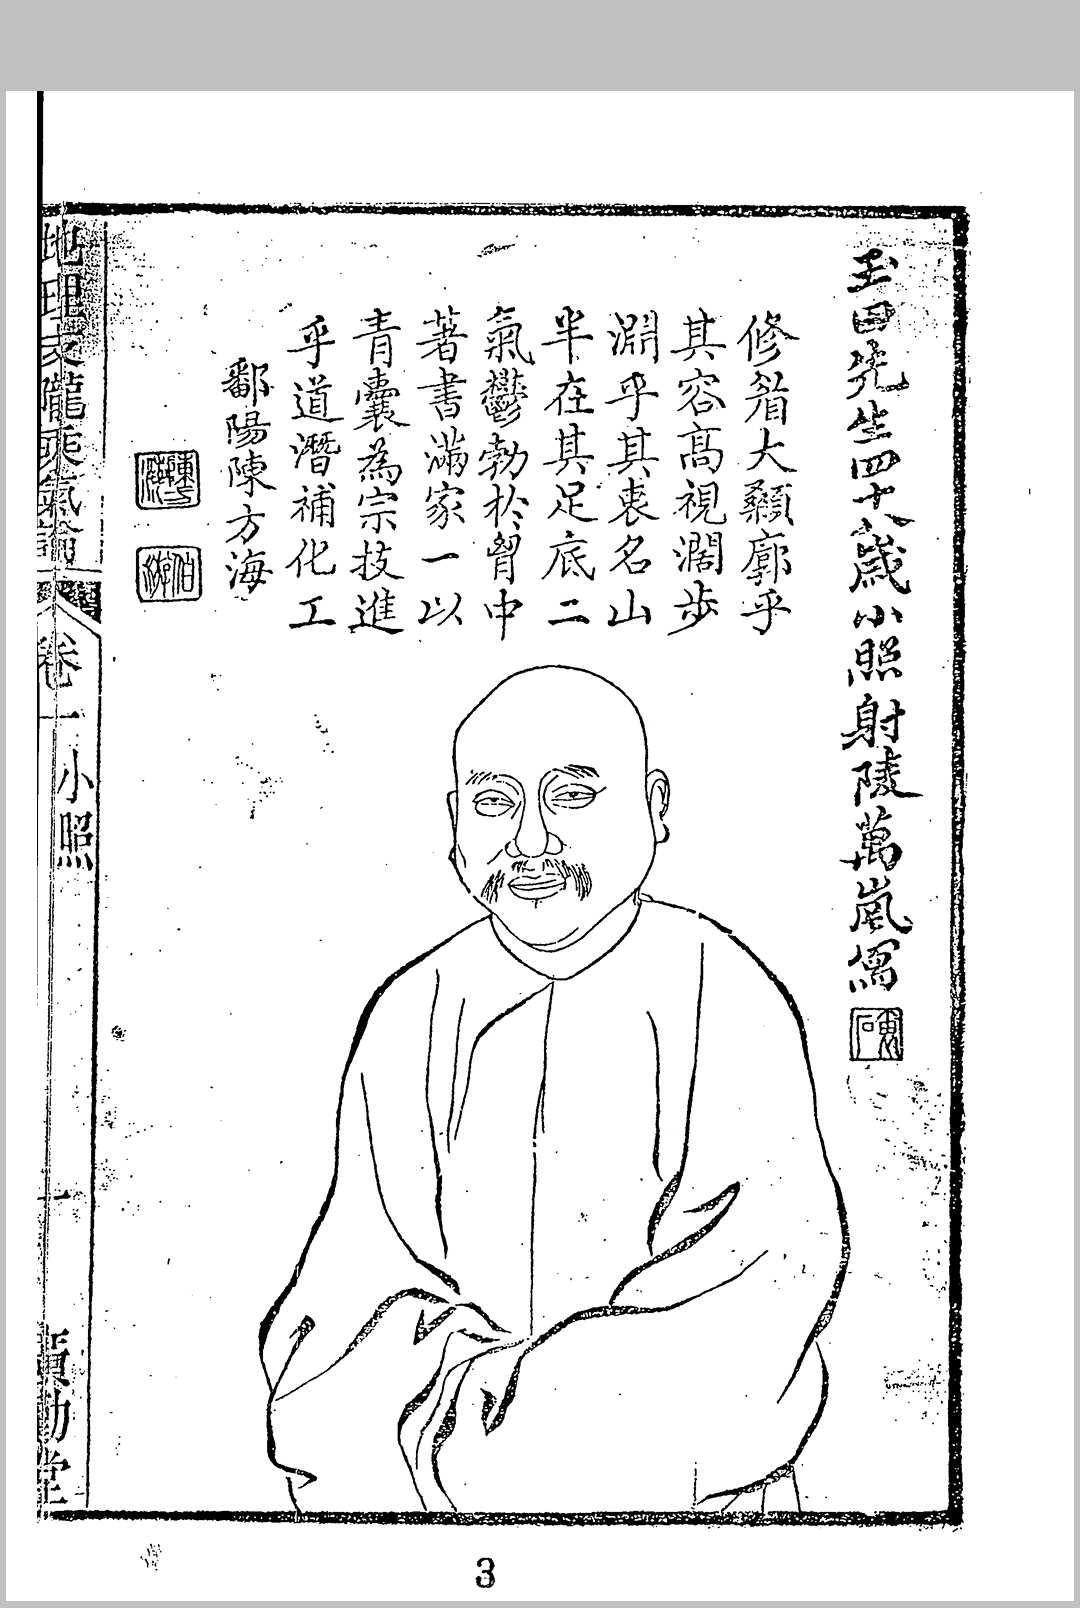 玉田先生四十八歲小照射陵萬嵐寫
修眉大顙廓乎
其容高視濶步
淵乎其衷名山
半在其足底二
氣鬱勃於胷中
著書滿家一以
青囊為宗技進
乎道潛補化工
鄱陽陳方海
陳方海
伯游
卷一
小照
一
廣勤堂
3